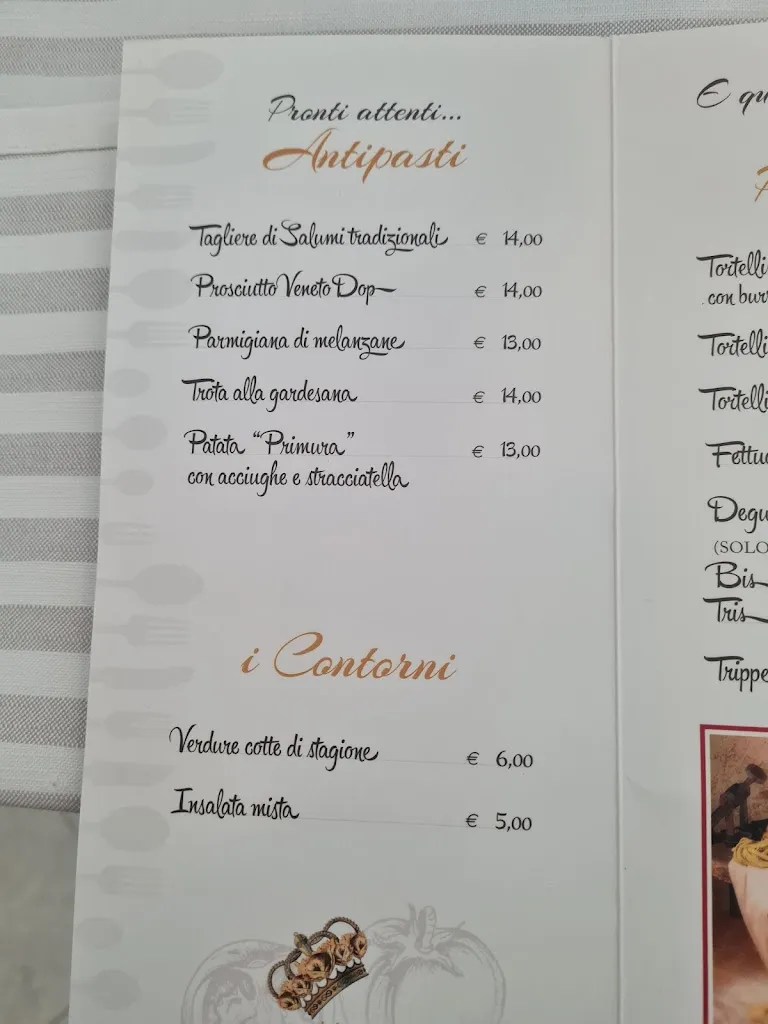 Pronti attenti...
Antipasti
Tagliere di Salumi tradizionali € 14,00
Prosciutto Veneto Dop € 14,00
Parmigiana di melanzane € 13,00
Trota alla gardesana € 14,00
Patata “Primura” € 13,00
con acciughe e stracciatella
i Contorni
Verdure cotte di stagione € 6,00
Insalata mista € 5,00
E
Tortelli
con
Tortelli
Tortelli
(SOLO
Bis
Tris